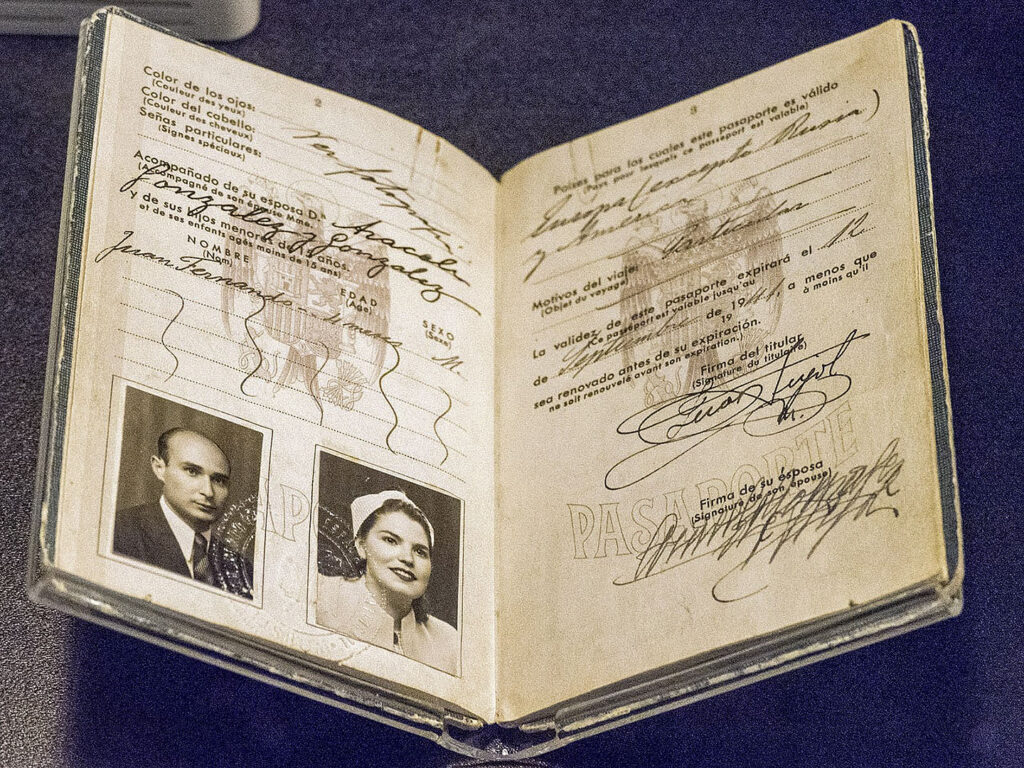 2
Color de los ojos:
(Couleur des yeux)
Color del cabello:
(Couleur des cheveux)
Señas particulares:
(Signes spéciaux)
Ver fotografía
Acompañado de su esposa D.ª Araceli
(Accompagné de son épouse Mme.)
González González
y de sus hijos menores de años.
et de ses enfants agés moins de 15 ans.
NOMBRE
(Nom)
EDAD
(Age)
SEXO
(Sexe)
Juan Fernando
M.
3
Países para los cuales este pasaporte es válido
(Pays pour lesquels ce passeport est valable)
Europa (excepto Rusia)
y América
Motivos del viaje: Particular
(Objet du voyage)
La validez de este pasaporte expirará el 12
(Ce passeport est valable jusqu'au
de Septiembre de 1941, a menos que
19 à moins qu'il
sea renovado antes de su expiración.
ne soit renouvelé avant son expiration.)
Firma del titular
(Signature du titulaire)
Juan Pujol
Firma de su esposa
(Signature de son épouse)
PASAPORTE